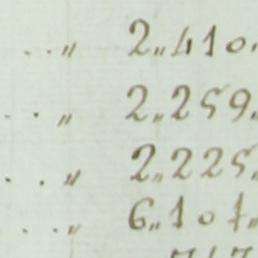 ..„ 2„410.
..„ 2„259.
..„ 2„225.
..„ 6„101.